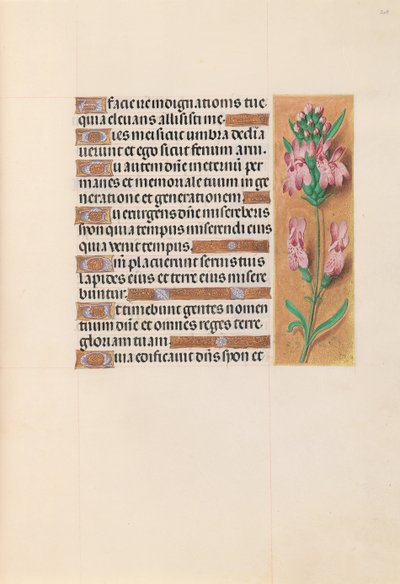 A facie ire indignationis tue
quia elevans allisisti me.
Dies mei sicut umbra declia
verunt et ego sicut fenum arui.
Tu autem dñe ineternũ per
manes et memoriale tuum in ge
neratione et generationem.
Tu exurgens dñe misereberis
syon quia tempus miserendi eius
quia venit tempus.
Qm̃ placuerunt servis tuis
lapides eius et terre eius misere
buntur.
Et timebunt gentes nomen
tuum dñe et omnes reges terre
gloriam tuam.
Quia edificavit dñs syon et